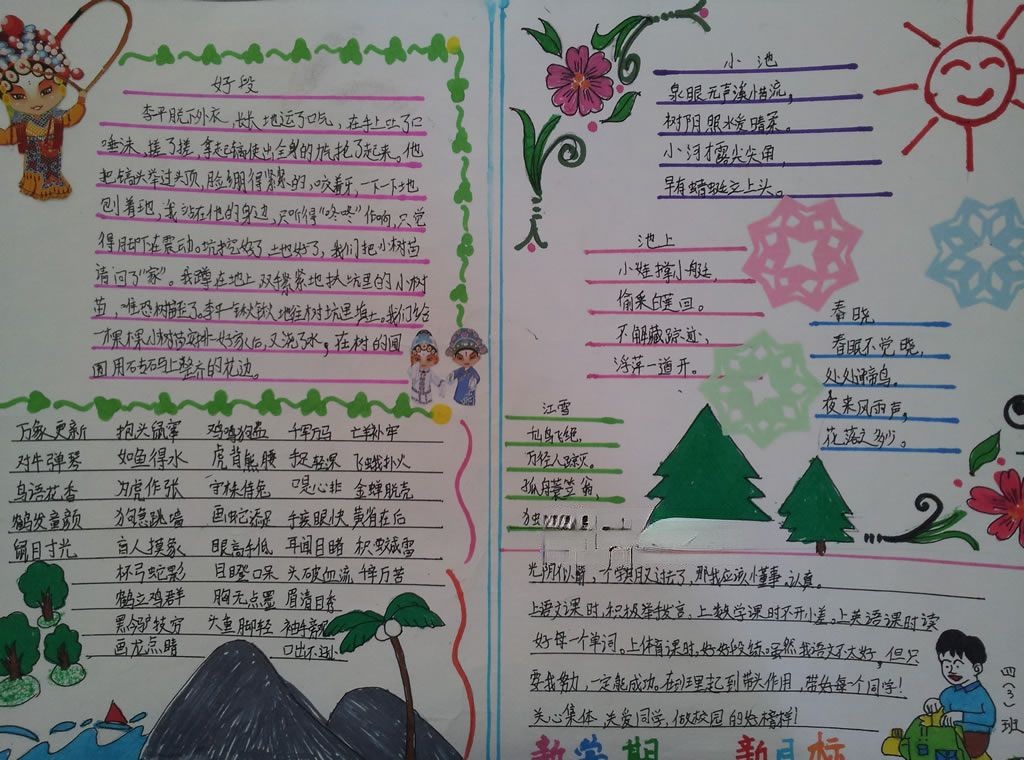 好段
李平脱下外衣，长长地运了口气，在手上吐了口
唾沫，搓了搓，拿起镐使出全身的力气挖了起来。他
把镐头举过头顶，脸绷得紧紧的，咬着牙，一下一下地
刨着地，我站在他的身边，只听得“咚咚”作响，只觉
得脚下在震动。坑挖好了，土地好了，我们把小树苗
请问了“家”。我蹲在地上双手紧紧地扶坑里的小树
苗，唯恐树苗歪了。李平一锹一锹地往树坑里填土。我们给
一棵棵小树苗安排好家后，又浇了水，在树的周
围用石砖码上整齐的花边。
万象更新 抱头鼠窜 鸡鸣狗盗 千军万马 亡羊补牢
对牛弹琴 如鱼得水 虎背熊腰 手足轻果 飞蛾扑火
鸟语花香 为虎作张 守株待兔 口是心非 金蝉脱壳
鹤发童颜 狗急跳墙 画蛇添足 手疾眼快 黄雀在后
鼠目寸光 盲人摸象 眼高手低 耳闻目睹 积雪成雷
杯弓蛇影 目瞪口呆 头破血流 千辛万苦
鹤立鸡群 胸无点墨 眉清目秀
黑今驴技穷 头重脚轻 袖手旁观
画龙点睛 口出不逊
小池
泉眼无声溪惜流，
树阴照水爱晴柔。
小河才露尖尖角，
早有蜻蜓立上头。
池上
小娃撑小艇，
偷采白莲回。
不解藏踪迹，
浮萍一道开。
春晓
春眠不觉晓，
处处啼鸟。
夜来风雨声，
花落之多少。
江雪
千山鸟飞绝，
万径人踪灭。
孤舟蓑笠翁，
独
光阴似箭，一个学期又过去了，那我应该懂事、认真。
上语文课时，积极举发言，上数学课时不开小差。上英语课时读
好每一个单词。上体育课时，好好锻练。虽然我语文不太好，但只
要我努力，一定能成功。在班里起到带头作用，带好每个同学！
关心集体、关爱同学，做校园的好榜样！
新学期 新目标
四（3）班